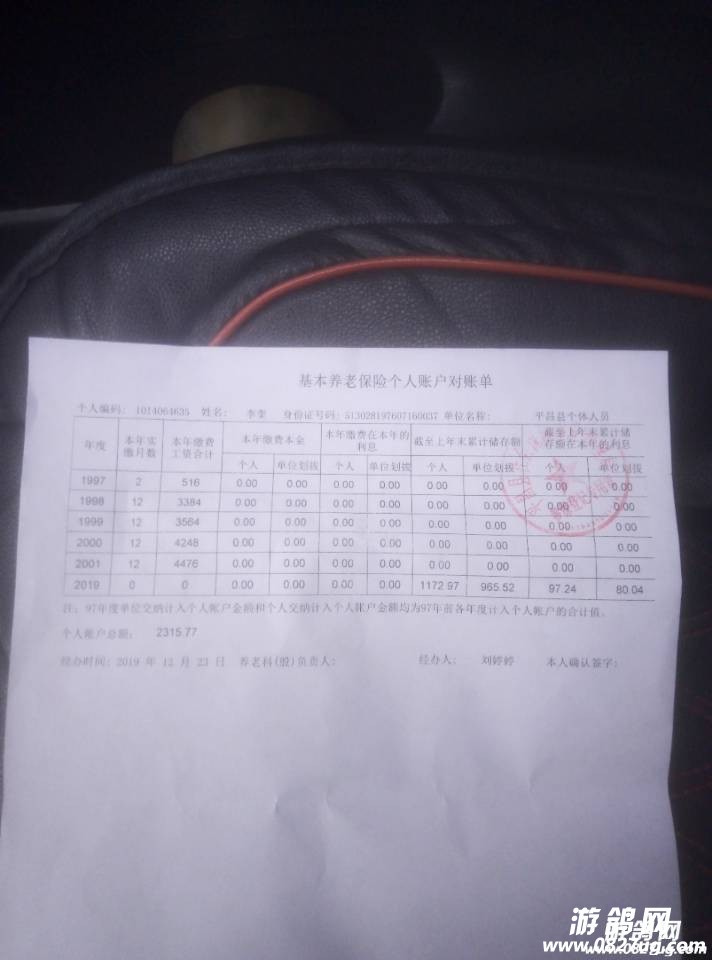 基本养老保险个人账户对账单
个人编码: 1014064635 姓名: 李奎 身份证号码: 513028197607160037 单位名称: 平昌县个体人员
年度 本年实缴月数 本年缴费工资合计 本年缴费本金 本年缴费在本年的利息 截至上年末累计储存额 截至上年末累计储存额在本年的利息
个人 单位划拨 个人 单位划拨 个人 单位划拨 个人 单位划拨
1997 2 516 0.00 0.00 0.00 0.00 0.00 0.00 0.00 0.00
1998 12 3384 0.00 0.00 0.00 0.00 0.00 0.00 0.00 0.00
1999 12 3564 0.00 0.00 0.00 0.00 0.00 0.00 0.00 0.00
2000 12 4248 0.00 0.00 0.00 0.00 0.00 0.00 0.00 0.00
2001 12 4476 0.00 0.00 0.00 0.00 0.00 0.00 0.00 0.00
2019 0 0 0.00 0.00 0.00 0.00 1172.97 965.52 97.24 80.04
注: 97年度单位交纳计入个人账户金额和个人交纳计入个人账户金额均为97年前各年度计入个人账户的合计值。
个人账户总额: 2315.77
经办时间: 2019 年 12 月 23 日 养老科(股)负责人: 经办人: 刘婷婷 本人确认签字:
游鸽网
www.0827ug.com
游鸽网
www.0827ug.com